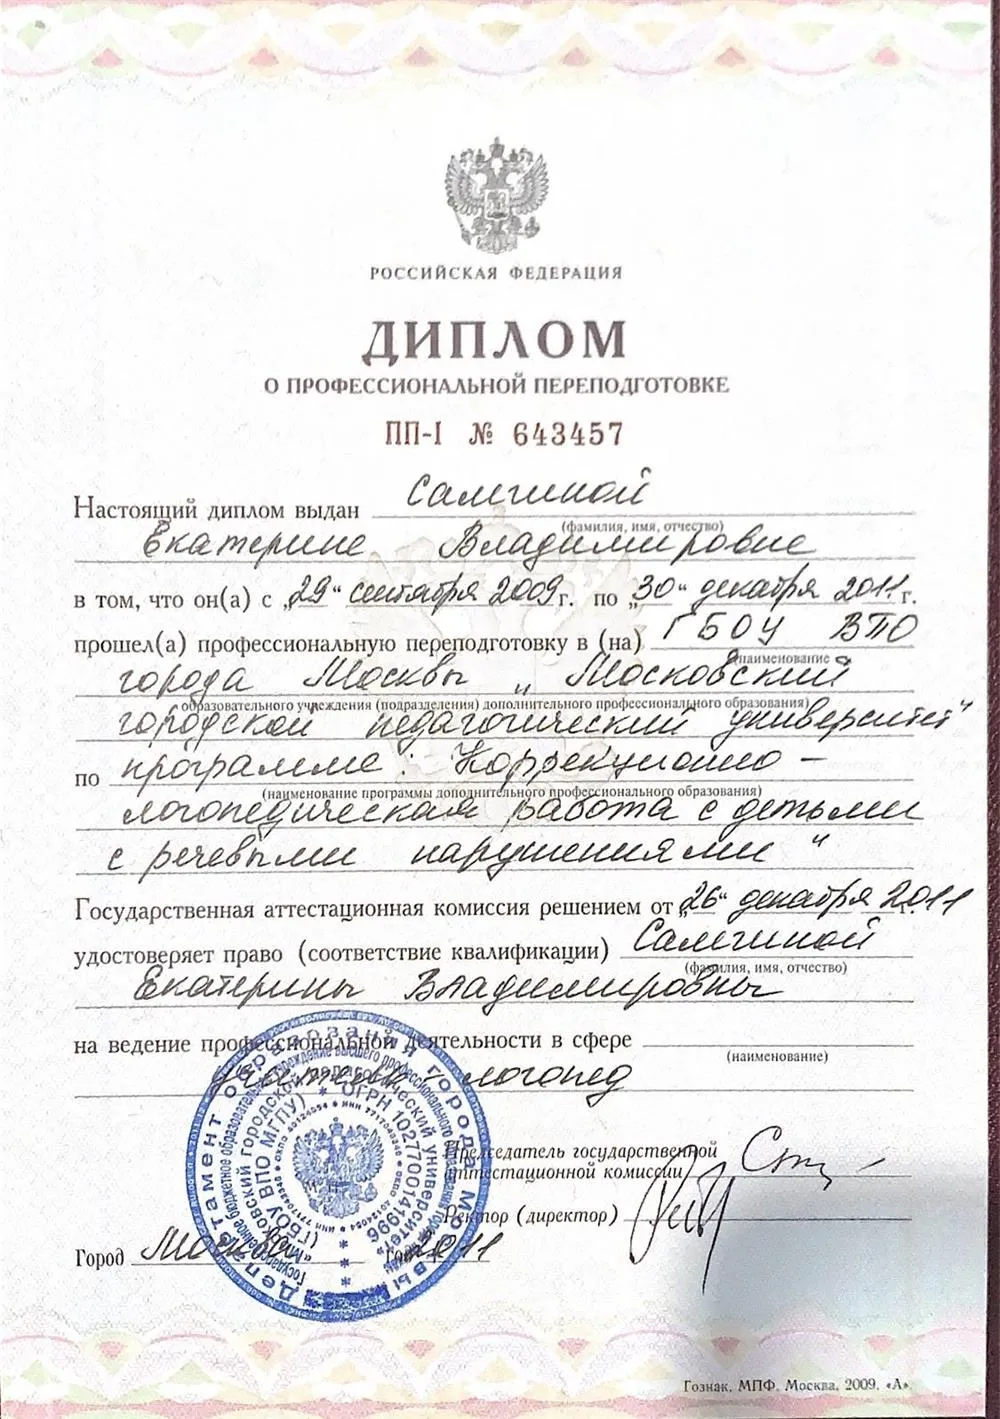 РОССИЙСКАЯ ФЕДЕРАЦИЯ
ДИПЛОМ
О ПРОФЕССИОНАЛЬНОЙ ПЕРЕПОДГОТОВКЕ
ПП-I № 643457
Настоящий диплом выдан Салгиной
(фамилия, имя, отчество)
Екатерине Владимировне
в том, что он(а) с „29“ сентября 2009 г. по „30“ декабря 2011 г.
прошел(а) профессиональную переподготовку в (на) ГБОУ ВПО
(наименование
города Москвы „Московский
образовательного учреждения (подразделения) дополнительного профессионального образования)
городской педагогический университет“
по программе: Коррекционно –
(наименование программы дополнительного профессионального образования)
логопедическая работа с детьми
с речевыми нарушениями“
Государственная аттестационная комиссия решением от „26“ декабря 2011 г.
удостоверяет право (соответствие квалификации) Салгиной
(фамилия, имя, отчество)
Екатерины Владимировны
на ведение профессиональной деятельности в сфере
(наименование)
учитель – логопед
Председатель государственной
аттестационной комиссии
Ректор (директор)
Город Москва год 2011
Департамент образования города Москвы
«Московский городской педагогический университет»
(ГБОУ ВПО МГПУ) * ОГРН 1027700141996
Гознак, МПФ, Москва, 2009, «А».